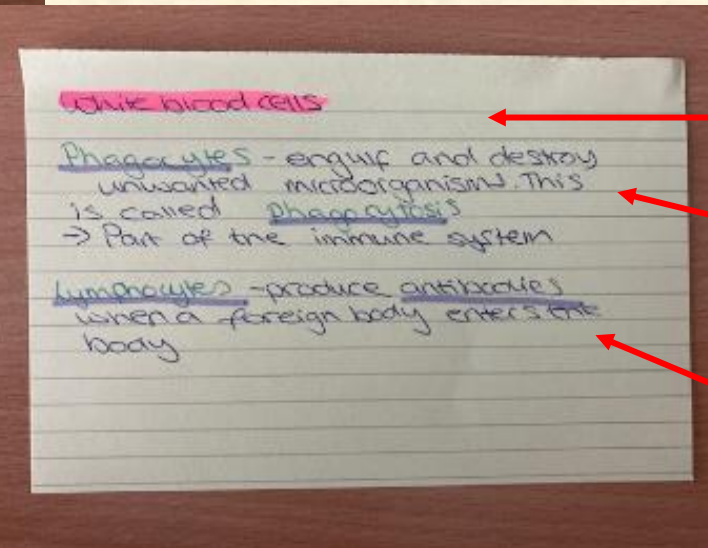 White blood cells
Phagocytes - engulf and destroy
unwanted microorganisms. This
is called phagocytosis
→ Part of the immune system
Lymphocytes - produce antibodies
when a foreign body enters the
body